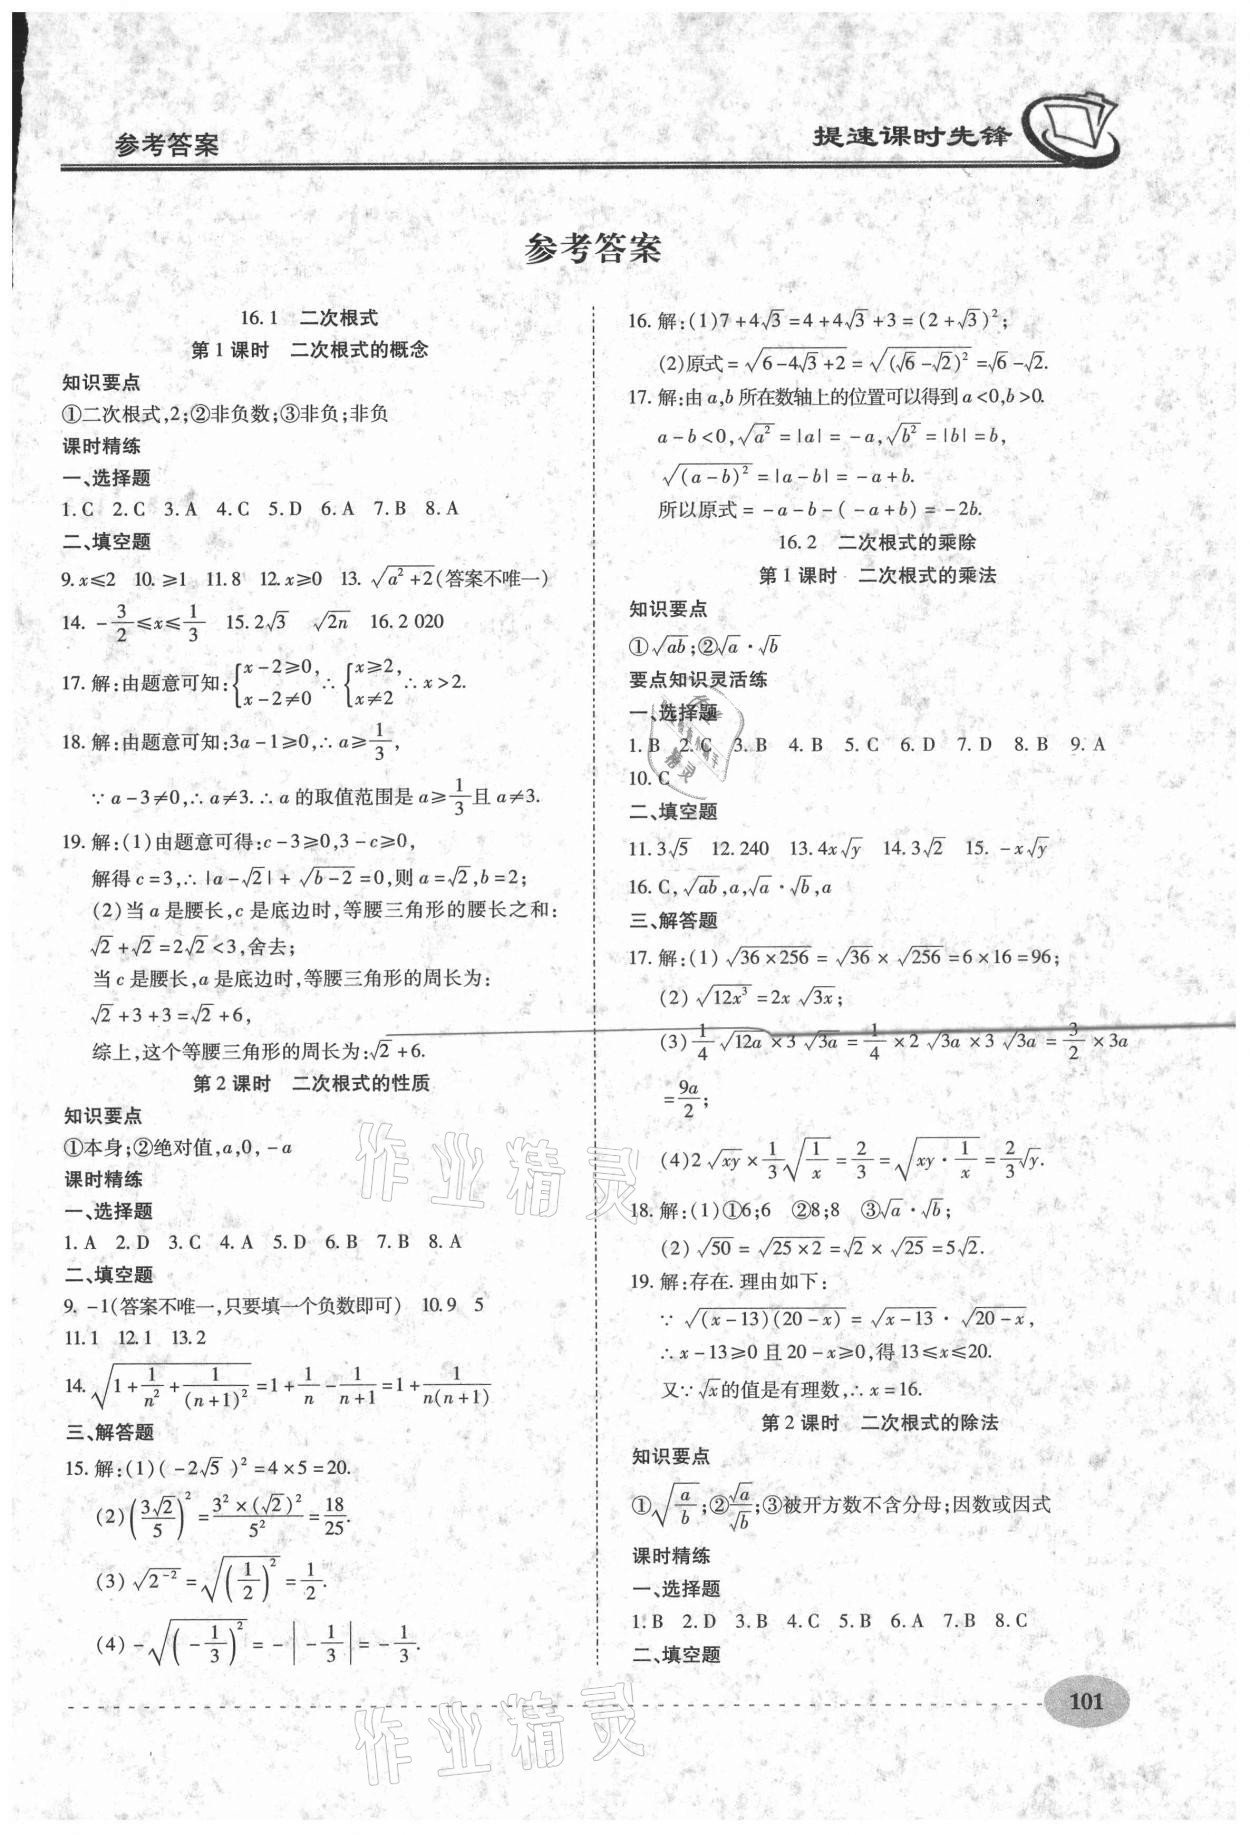 参考答案
提速课时先锋
参考答案
16.1 二次根式
第1课时 二次根式的概念
知识要点
①二次根式,2;②非负数;③非负;非负
课时精练
一、选择题
1.C 2.C 3.A 4.C 5.D 6.A 7.B 8.A
二、填空题
9.x≤2 10.≥1 11.8 12.x≥0 13.√(a²+2)(答案不唯一)
14.-3/2≤x≤1/3 15.2√3 √(2n) 16.2 020
17.解:由题意可知:{x-2≥0, x-2≠0 ∴{x≥2, x≠2 ∴x>2.
18.解:由题意可知:3a-1≥0,∴a≥1/3,
∵a-3≠0,∴a≠3.∴a的取值范围是a≥1/3且a≠3.
19.解:(1)由题意可得:c-3≥0,3-c≥0,
解得c=3,∴|a-√2|+√(b-2)=0,则a=√2,b=2;
(2)当a是腰长,c是底边时,等腰三角形的腰长之和:
√2+√2=2√2<3,舍去;
当c是腰长,a是底边时,等腰三角形的周长为:
√2+3+3=√2+6,
综上,这个等腰三角形的周长为:√2+6.
第2课时 二次根式的性质
知识要点
①本身;②绝对值,a,0,-a
课时精练
一、选择题
1.A 2.D 3.C 4.A 5.D 6.B 7.B 8.A
二、填空题
9.-1(答案不唯一,只要填一个负数即可) 10.9 5
11.1 12.1 13.2
14.√(1+1/n²+1/(n+1)²)=1+1/n-1/(n+1)=1+1/(n(n+1))
三、解答题
15.解:(1)(-2√5)²=4×5=20.
(2)(3√2/5)²=3²×(√2)²/5²=18/25.
(3)√(2⁻²)=√((1/2)²)=1/2.
(4)-√((-1/3)²)=-|-1/3|=-1/3.
16.解:(1)7+4√3=4+4√3+3=(2+√3)²;
(2)原式=√(6-4√3+2)=√((√6-√2)²)=√6-√2.
17.解:由a,b所在数轴上的位置可以得到a<0,b>0.
a-b<0,√(a²)=|a|=-a,√(b²)=|b|=b,
√((a-b)²)=|a-b|=-a+b.
所以原式=-a-b-(-a+b)=-2b.
16.2 二次根式的乘除
第1课时 二次根式的乘法
知识要点
①√(ab);②√a·√b
要点知识灵活练
一、选择题
1.B 2.C 3.B 4.B 5.C 6.D 7.D 8.B 9.A
10.C
二、填空题
11.3√5 12.240 13.4x√y 14.3√2 15.-x√y
16.C,√(ab),a,√a·√b,a
三、解答题
17.解:(1)√(36×256)=√36×√256=6×16=96;
(2)√(12x³)=2x√(3x);
(3)1/4√(12a)×3√(3a)=1/4×2√(3a)×3√(3a)=3/2×3a
=9a/2;
(4)2√(xy)×1/3√(1/x)=2/3=√(xy·1/x)=2/3√y.
18.解:(1)①6;6 ②8;8 ③√a·√b;
(2)√50=√(25×2)=√2×√25=5√2.
19.解:存在.理由如下:
∵√((x-13)(20-x))=√(x-13)·√(20-x),
∴x-13≥0且20-x≥0,得13≤x≤20.
又∵√x的值是有理数,∴x=16.
第2课时 二次根式的除法
知识要点
①√(a/b);②√a/√b;③被开方数不含分母;因数或因式
课时精练
一、选择题
1.B 2.D 3.B 4.C 5.B 6.A 7.B 8.C
二、填空题
101
作业精灵
作业精灵